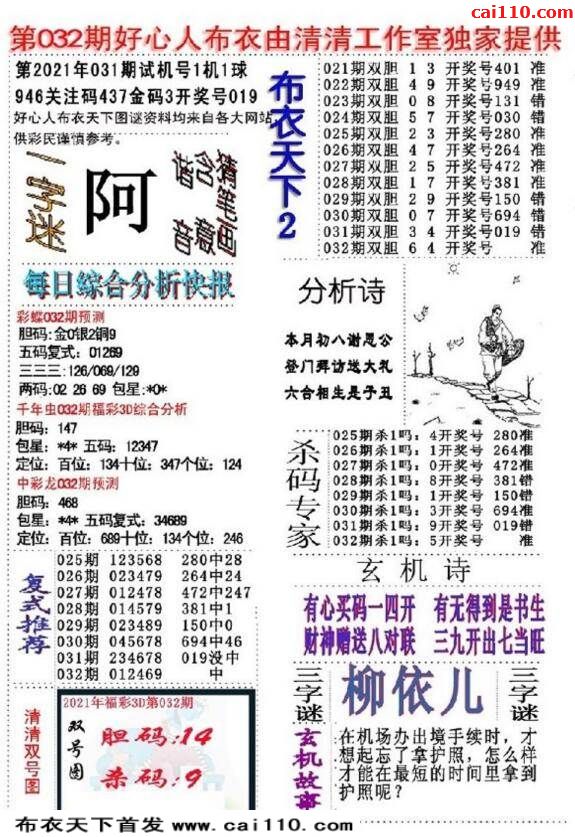 cai110.com
第032期好心人布衣由清清工作室独家提供
第2021年031期试机号1机1球
946关注码437金码3开奖号019
好心人布衣天下图谜资料均来自各大网站,
供彩民谨慎参考。
一字谜
阿
谐音
含意
猜笔画
布衣天下2
021期双胆 1 3 开奖号401 准
022期双胆 4 9 开奖号949 准
023期双胆 0 8 开奖号131 错
024期双胆 5 7 开奖号030 错
025期双胆 6 0 开奖号280 准
026期双胆 2 3 开奖号264 准
027期双胆 2 5 开奖号472 准
028期双胆 1 7 开奖号381 准
029期双胆 2 9 开奖号150 错
030期双胆 0 7 开奖号694 错
031期双胆 3 4 开奖号019 错
032期双胆 6 4 开奖号 准
每日綜合分析快报
彩蝶032期预测
胆码:金0银2铜9
五码复式: 01269
三三三:126/069/129
两码:02 26 69 包星:*0*
千年虫032期福彩3D综合分析
胆码: 147
包星: *4* 五码: 12347
定位: 百位: 134十位: 347个位: 124
中彩龙032期预测
胆码: 468
包星: *4* 五码复式: 34689
定位: 百位: 689十位: 134个位: 246
分析诗
本月初八谢恩公
登门拜访送大礼
六合相生是子丑
杀码专家
025期杀1吗: 4开奖号 280准
026期杀1吗: 1开奖号 264准
027期杀1吗: 0开奖号 472准
028期杀1吗: 8开奖号 381错
029期杀1吗: 1开奖号 150错
030期杀1吗: 3开奖号 694准
031期杀1吗: 9开奖号 019错
032期杀1吗: 5开奖号 准
复式推荐
025期 123568 280中28
026期 023479 264中24
027期 012478 472中247
028期 014579 381中1
029期 023489 150中0
030期 045678 694中46
031期 234678 019没中
032期 012469 中
玄机诗
有心买码一四开 有无得到是书生
财神赠送八对联 三九开出七当旺
三字谜
柳依儿
三字谜
清清双号图
2021年福彩3D第032期
双号图
胆码:14
杀码:9
玄机故事
在机场办出境手续时，才
想起忘了拿护照，怎么样
才能在最短的时间里拿到
护照呢？
布衣天下首发 www.cai110.com